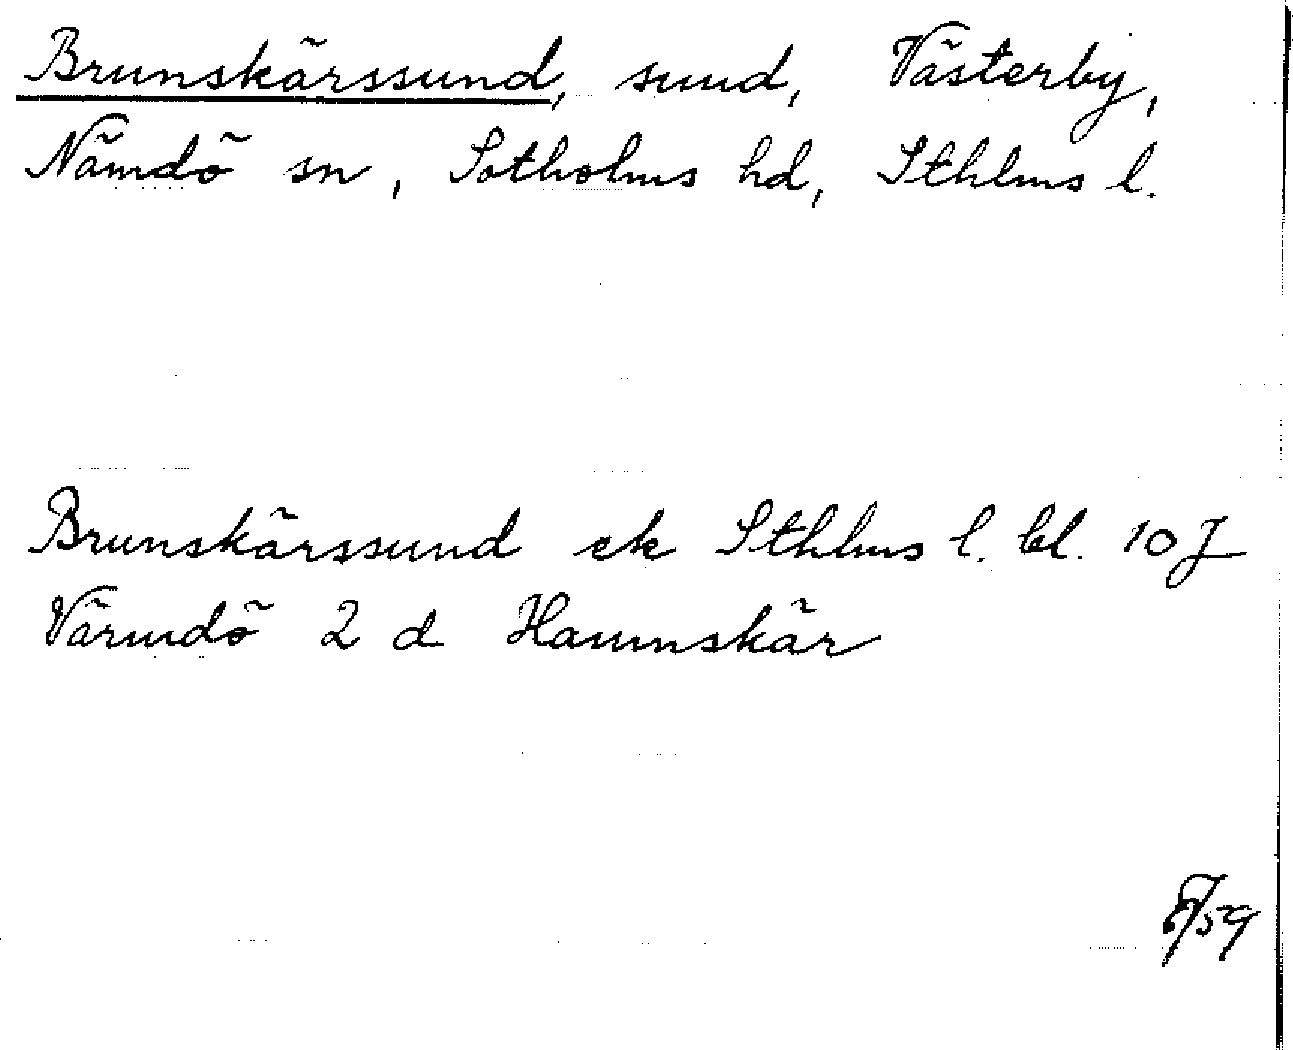 Brunskärssund, sund, Västerby,
Nämdö sn, Sotholms hd, Sthlms l.
Brunskärssund ek Sthlms l. bl. 10 J
Värmdö 2 d Hamnskär